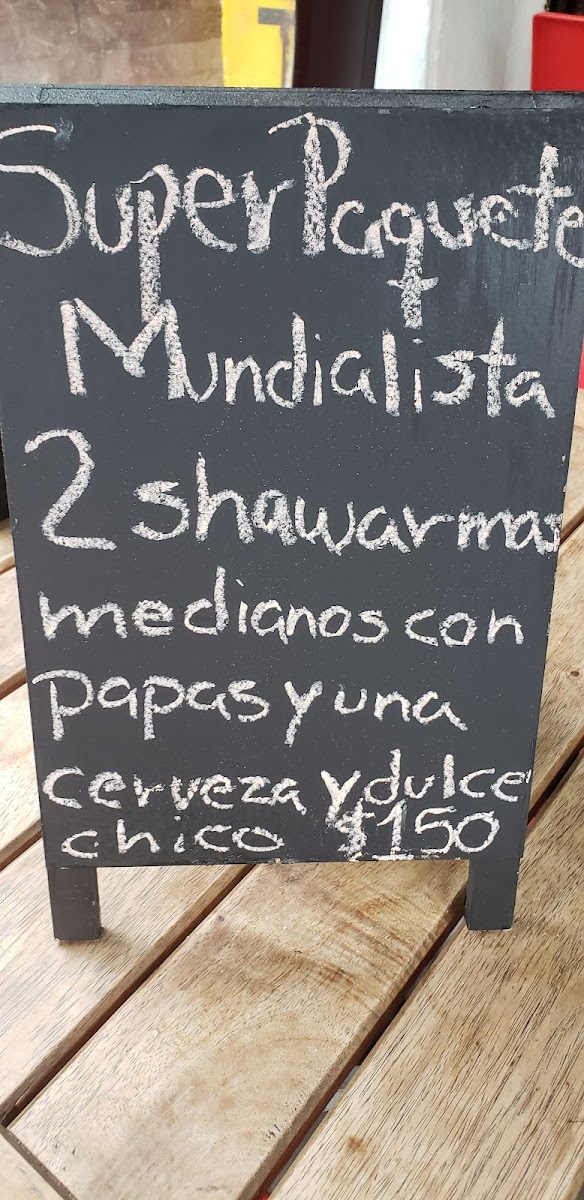 Super Paquete
Mundialista
2 shawarmas
medianos con
papas y una
cerveza y dulce
chico $150